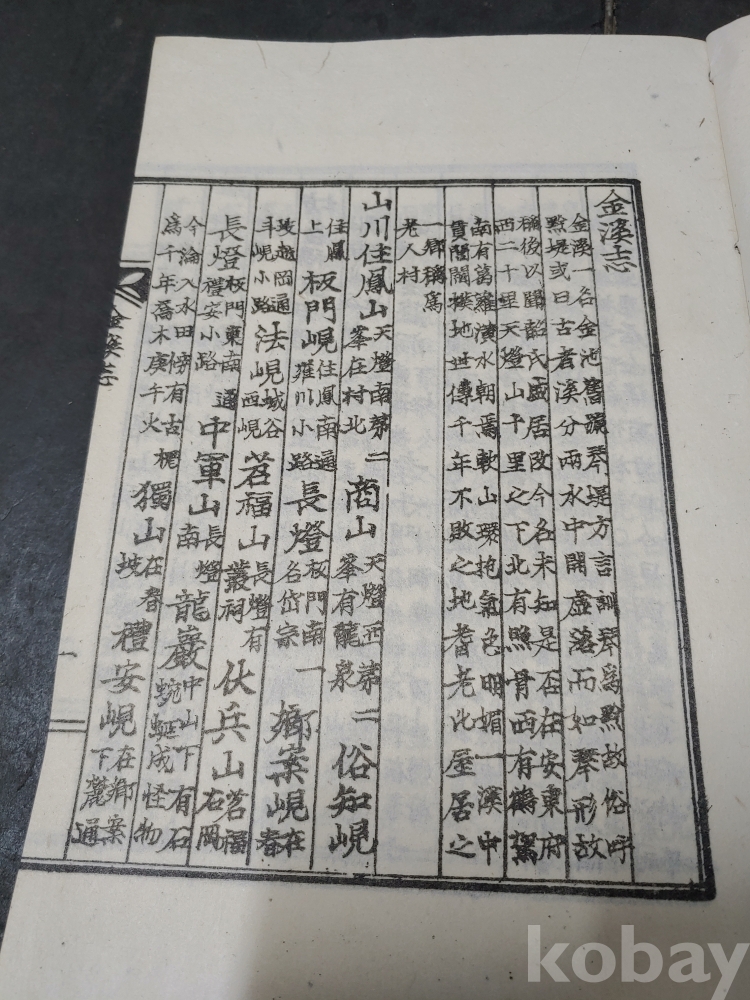 金溪志
金溪一名金池舊號琴堤方言訓琴爲默故俗呼
默堤或曰古者溪分兩水中開虛落而如琴形故
稱後以聞韶氏盛居改今名未知是否在安東府
西二十里天燈山十里之下北有照骨西有鶴駕
南有葛蘿潢水朝焉數山環抱氣色明媚一溪中
貫閭閻撲地世傳千年不敗之地耆老比屋居之
一鄉稱爲
老人村
山川住鳳山天燈南第二峯在村北商山天燈西第二峯有龍泉俗知峴
住鳳上板門峴住鳳南通羅川小路長燈板門南一名岱宗鄉案峴在春
坡越岡通斗峴小路法峴城谷西峴苕福山長燈有叢祠伏兵山苕福右岡
長燈板門東南通禮安小路中軍山長燈南龍巖中山下有石蜿蜒成怪物
今淪入水田傍有古槐爲千年喬木庚午火獨山在春坡禮安峴在鄉案下麓通
金溪志
一
kobay